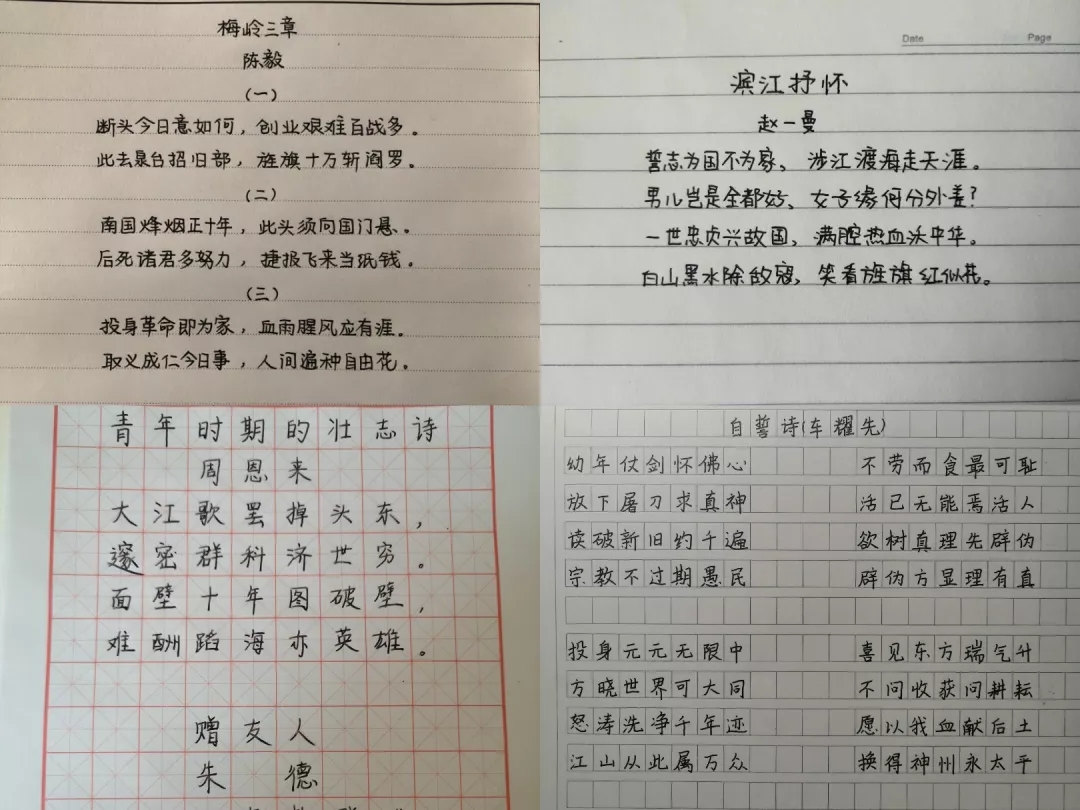 梅岭三章
陈毅
(一)
断头今日意如何，创业艰难百战多。
此去泉台招旧部，旌旗十万斩阎罗。
(二)
南国烽烟正十年，此头须向国门悬。
后死诸君多努力，捷报飞来当纸钱。
(三)
投身革命即为家，血雨腥风应有涯。
取义成仁今日事，人间遍种自由花。
Date Page
滨江抒怀
赵一曼
誓志为国不为家、涉江渡海走天涯。
男儿岂是全都好、女子缘何分外差？
一世忠贞兴故国，满腔热血沃中华。
白山黑水除敌寇，笑看旌旗红似花。
青年时期的壮志诗
周恩来
大江歌罢掉头东，
邃密群科济世穷。
面壁十年图破壁，
难酬蹈海亦英雄。
赠友人
朱德
自誓诗(车耀先)
幼年仗剑怀佛心 不劳而食最可耻
放下屠刀求真神 活已无能焉活人
读破新旧约千遍 欲树真理先辟伪
宗教不过期愚民 辟伪方显理有真
投身元元无限中 喜见东方瑞气升
方晓世界可大同 不问收获问耕耘
怒涛洗净千年迹 愿以我血献后土
江山从此属万众 换得神州永太平